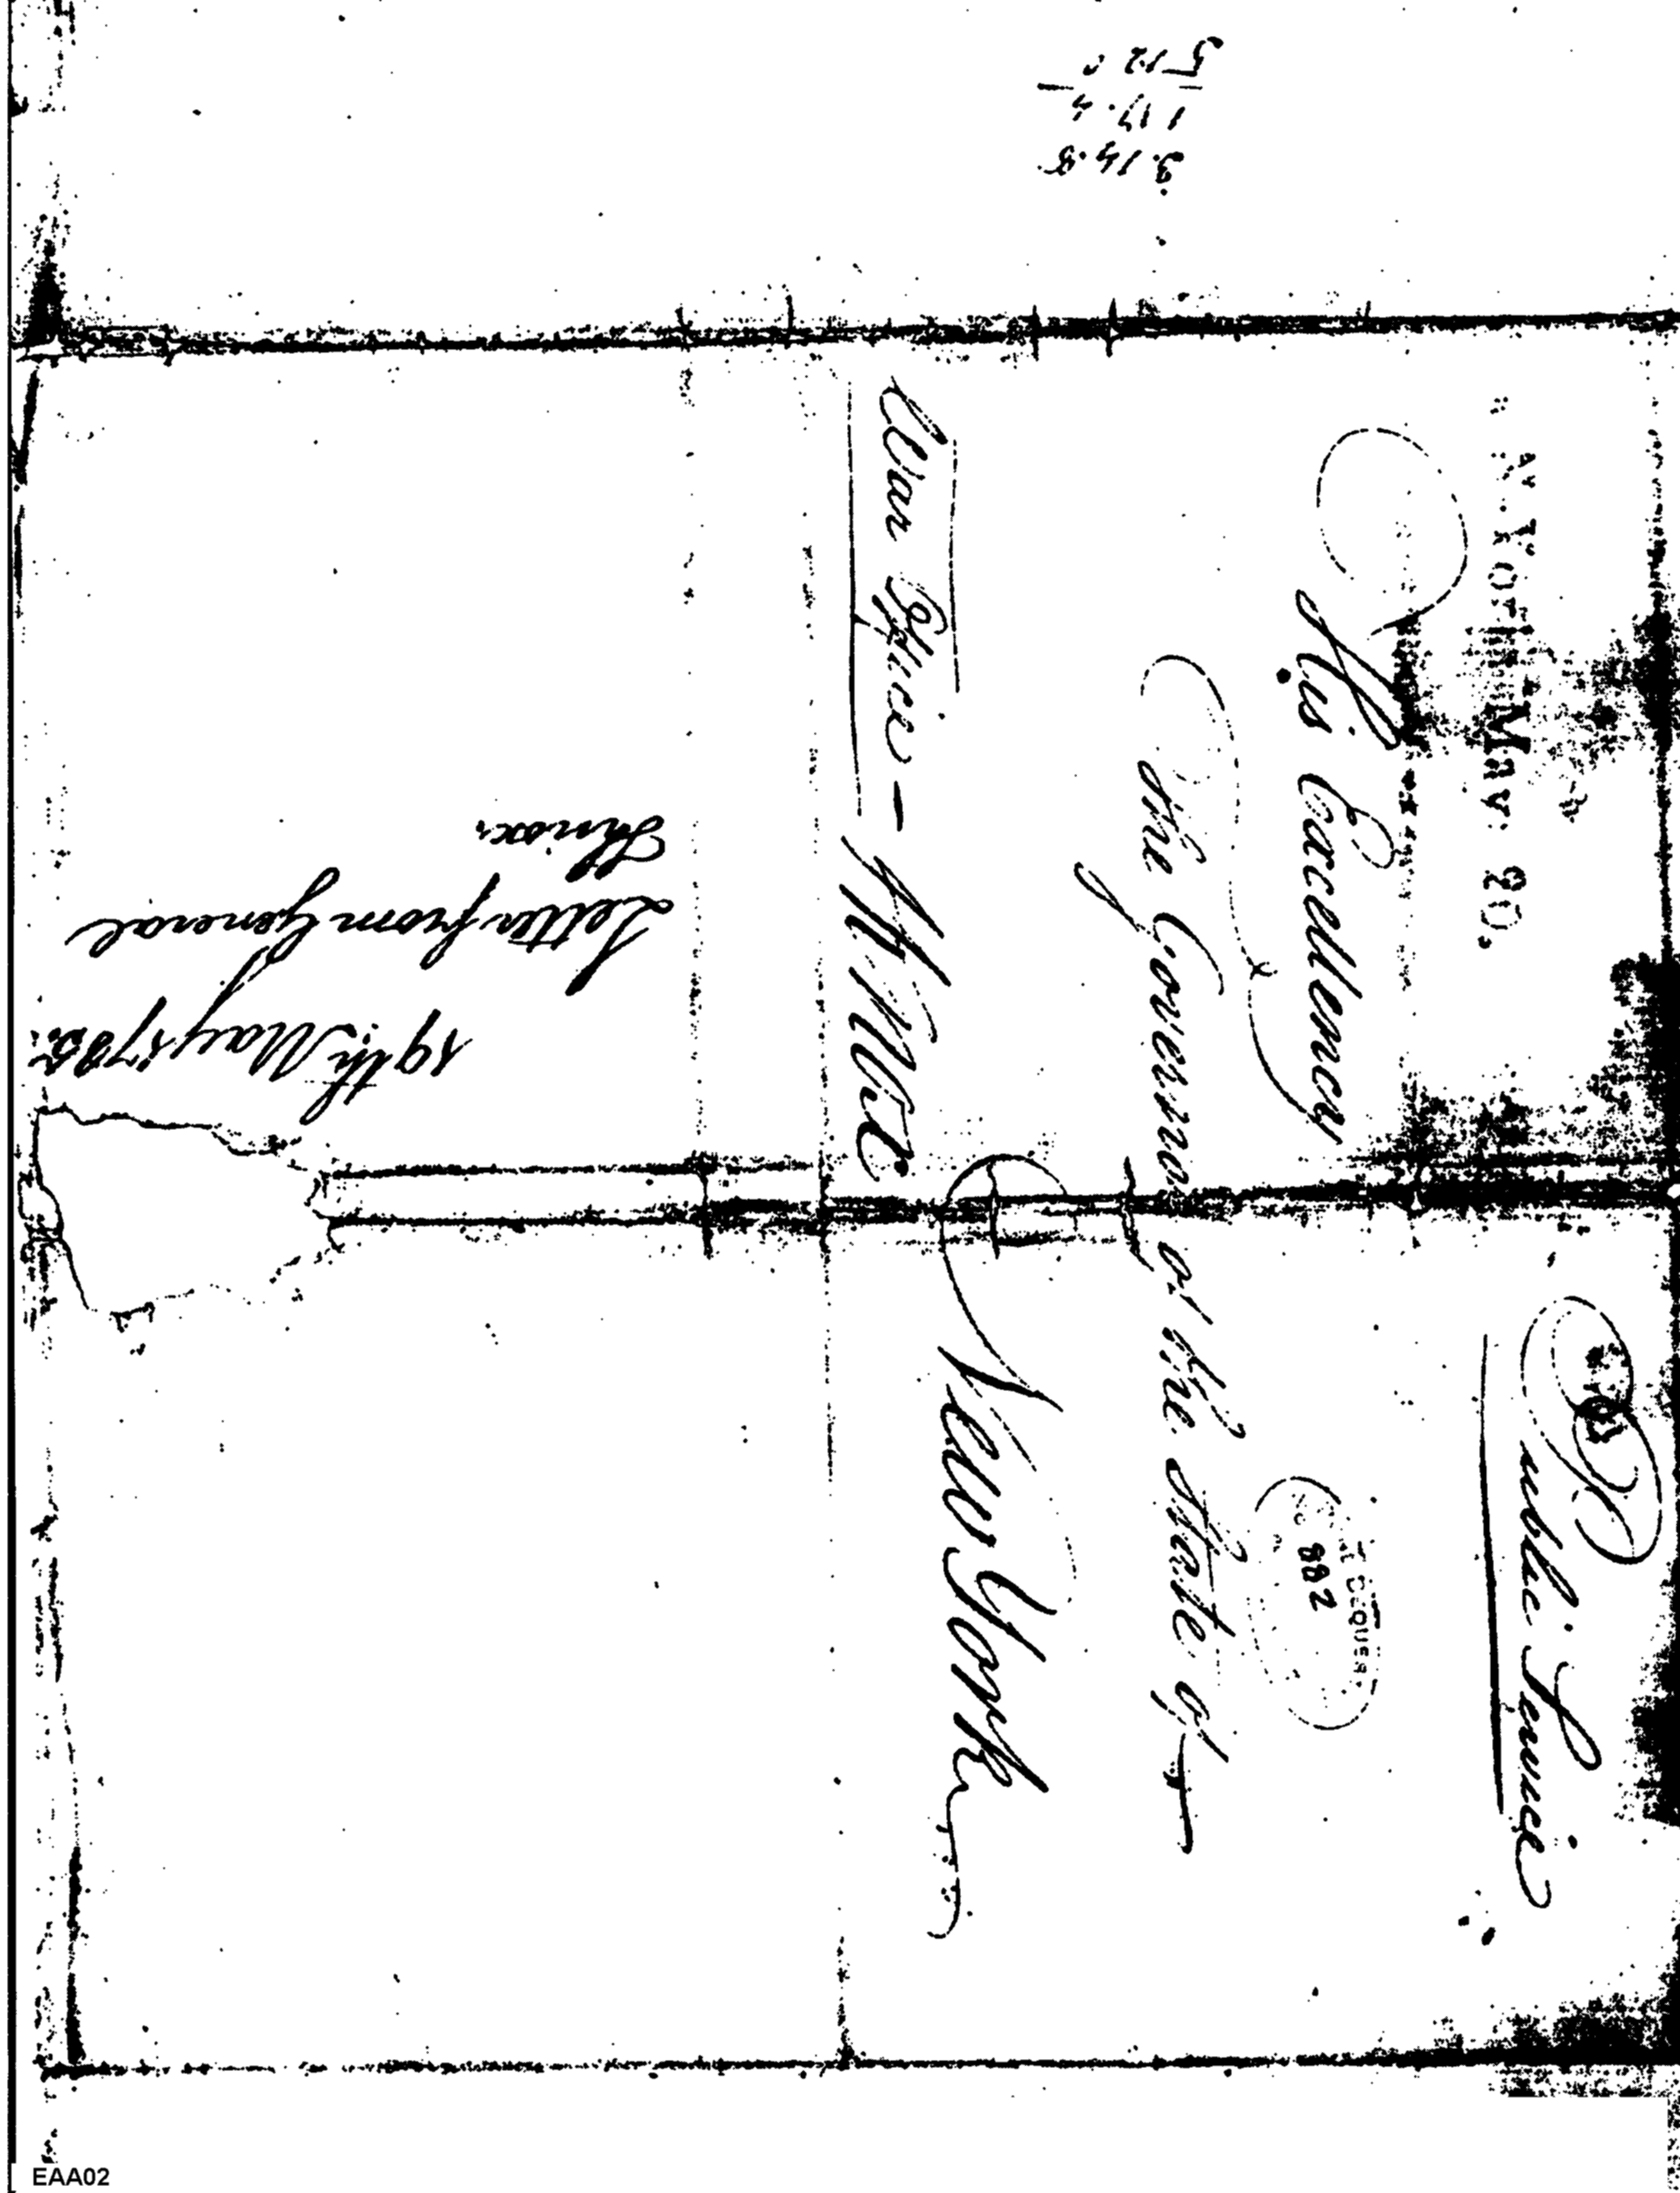 3.14.8
1 17.4
5 12 0
N. York May 20.
Public Service
His Excellency
The Governor of the State of
New York
882
War Office - H Knox
19th. May 1785.
Letter from General
Knox.
EAA02